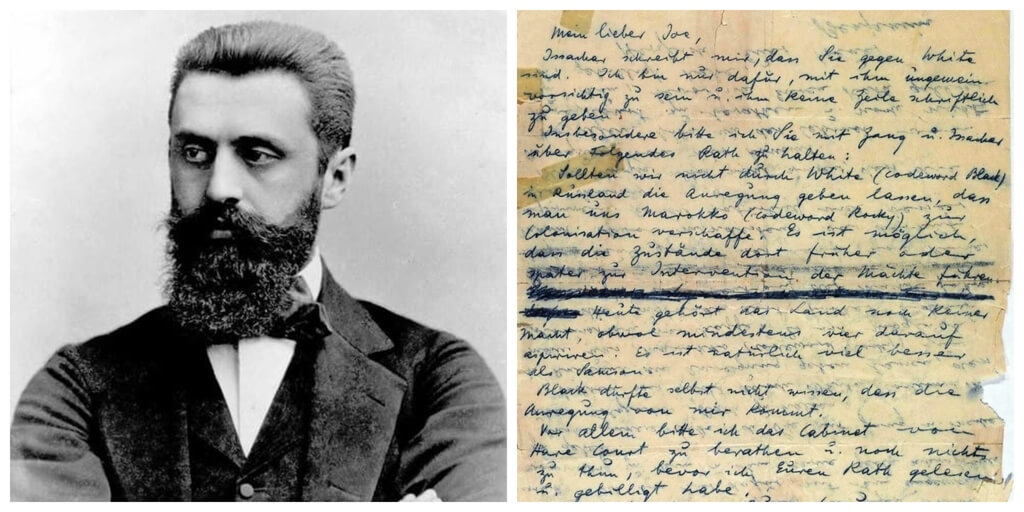 Mein lieber Joe,
Issachar schreibt mir, dass Sie gegen White
sind. Ich bin nur dafür, mit ihm ungemein
vorsichtig zu sein u. ihm keine Zeile schriftlich
zu geben.
Insbesondere bitte ich Sie mit Zang u. Issachar
über Folgendes Rath zu halten:
Sollten wir nicht durch White (codeword Black)
in Russland die Anregung geben lassen, dass
man uns Marokko (codeword Rocky) zur
Colonisation verschaffe. Es ist möglich,
dass die Zustände dort früher oder
später zur Intervention der Mächte führen
Heute gehört das Land noch keiner
Macht, obwol mindestens vier darauf
aspiriren. Es ist natürlich viel besser
als Samson.
Black dürfte selbst nicht wissen, dass die
Anregung von mir kommt.
Vor allem bitte ich das Cabinet von
Hare Court zu berathen u. noch nichts
zu thun, bevor ich Euren Rath gelesen
u. gebilligt habe.